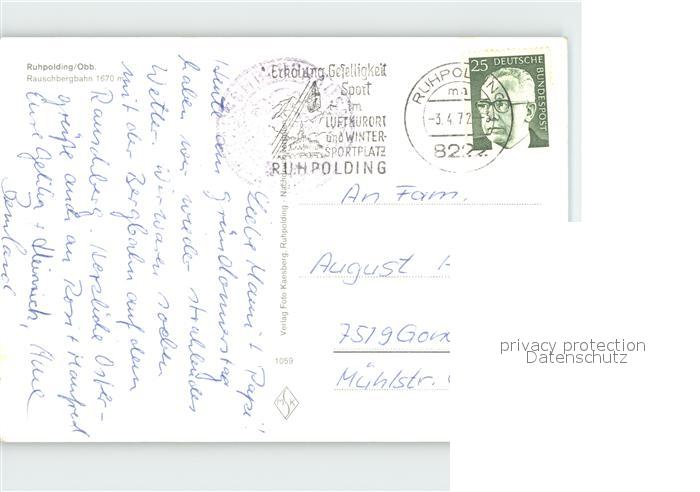 Ruhpolding/Obb.
Rauschbergbahn 1670
Erholung, Geselligkeit
Sport
im
LUFTKURORT
und WINTER-
SPORTPLATZ
RUHPOLDING
RUHPOLDING
-3.4.72
822
25 DEUTSCHE BUNDESPOST
Liebe Mami + Papi!
Heute am Gründonnerstag
haben wir wieder strahlendes
Wetter. Wir waren soeben
mit der Bergbahn auf dem
Rauschberg. Herzliche Oster-
grüße auch an Rosi + Manfred
Eure Heinrich,
Bernhard
Verlag Foto Kaesberg, Ruhpolding
1059
An Fam.
August
7519
Mühlstr.
privacy protection
Datenschutz